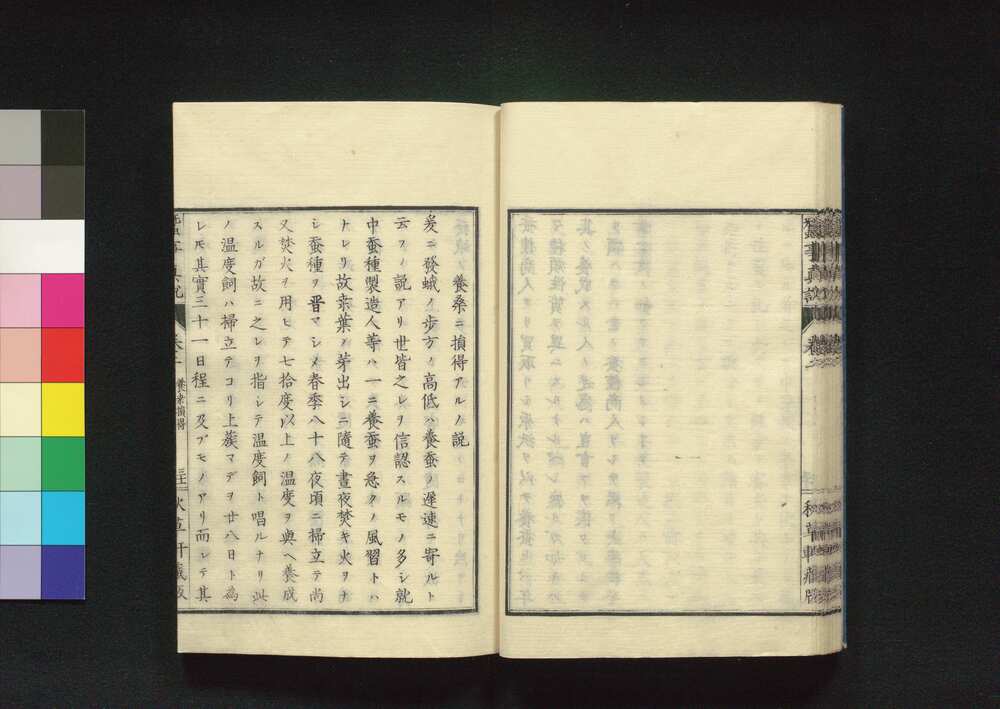 蚕事真説
秋草軒蔵版
養桑ニ損得アルノ説
爰ニ發蛾ノ歩方ノ高低ハ養蚕ノ遅速ニ寄ルト
云フノ説アリ世皆之レヲ信認スルモノ多シ就
中蚕種製造人等ハ一ニ養蚕ヲ急クノ風習トハ
ナレリ故桒葉ノ芽出シニ隨テ晝夜焚キ火ヲナ
シ蚕種ヲ晋マシメ春季八十八夜頃ニ掃立テ尚
又焚火ヲ用ヒテ七拾度以上ノ温度ヲ與ヘ養成
スルガ故ニ之レヲ指シテ温度飼ト唱ルナリ此
ノ温度飼ハ掃立テコリ上蔟マデヲ廿八日ト為
レ𪜈其實三十一日程ニ及ブモノアリ而シテ其
養桒損得